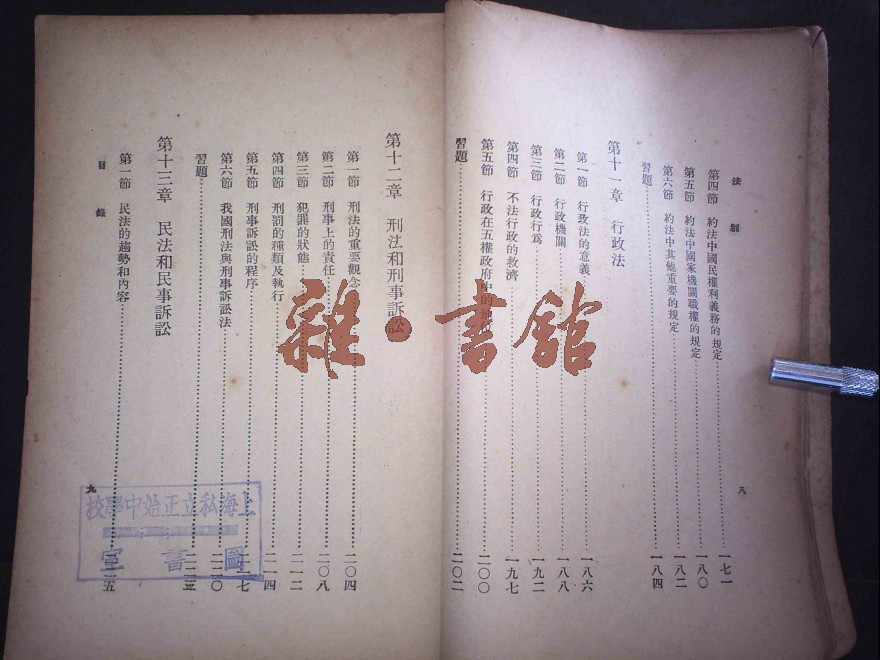 法制
第四節 約法中國民權利義務的規定 一七一
第五節 約法中國家機關職權的規定 一八〇
第六節 約法中其他重要的規定 一八二
習題 一八四
第十一章 行政法
第一節 行政法的意義 一八六
第二節 行政機關 一八八
第三節 行政行爲 一九二
第四節 不法行政的救濟 一九七
第五節 行政在五權政府中的地 二〇〇
習題 二〇二
八
第十二章 刑法和刑事訴訟
第一節 刑法的重要觀念 二〇四
第二節 刑事上的責任 二〇八
第三節 犯罪的狀態 二一二
第四節 刑罰的種類及執行 二一四
第五節 刑事訴訟的程序 二一七
第六節 我國刑法與刑事訴訟法 二二〇
習題 二二三
第十三章 民法和民事訴訟
第一節 民法的趨勢和內容 二二五
目錄
九
雜·書館
上海私立正始中學校
圖書室